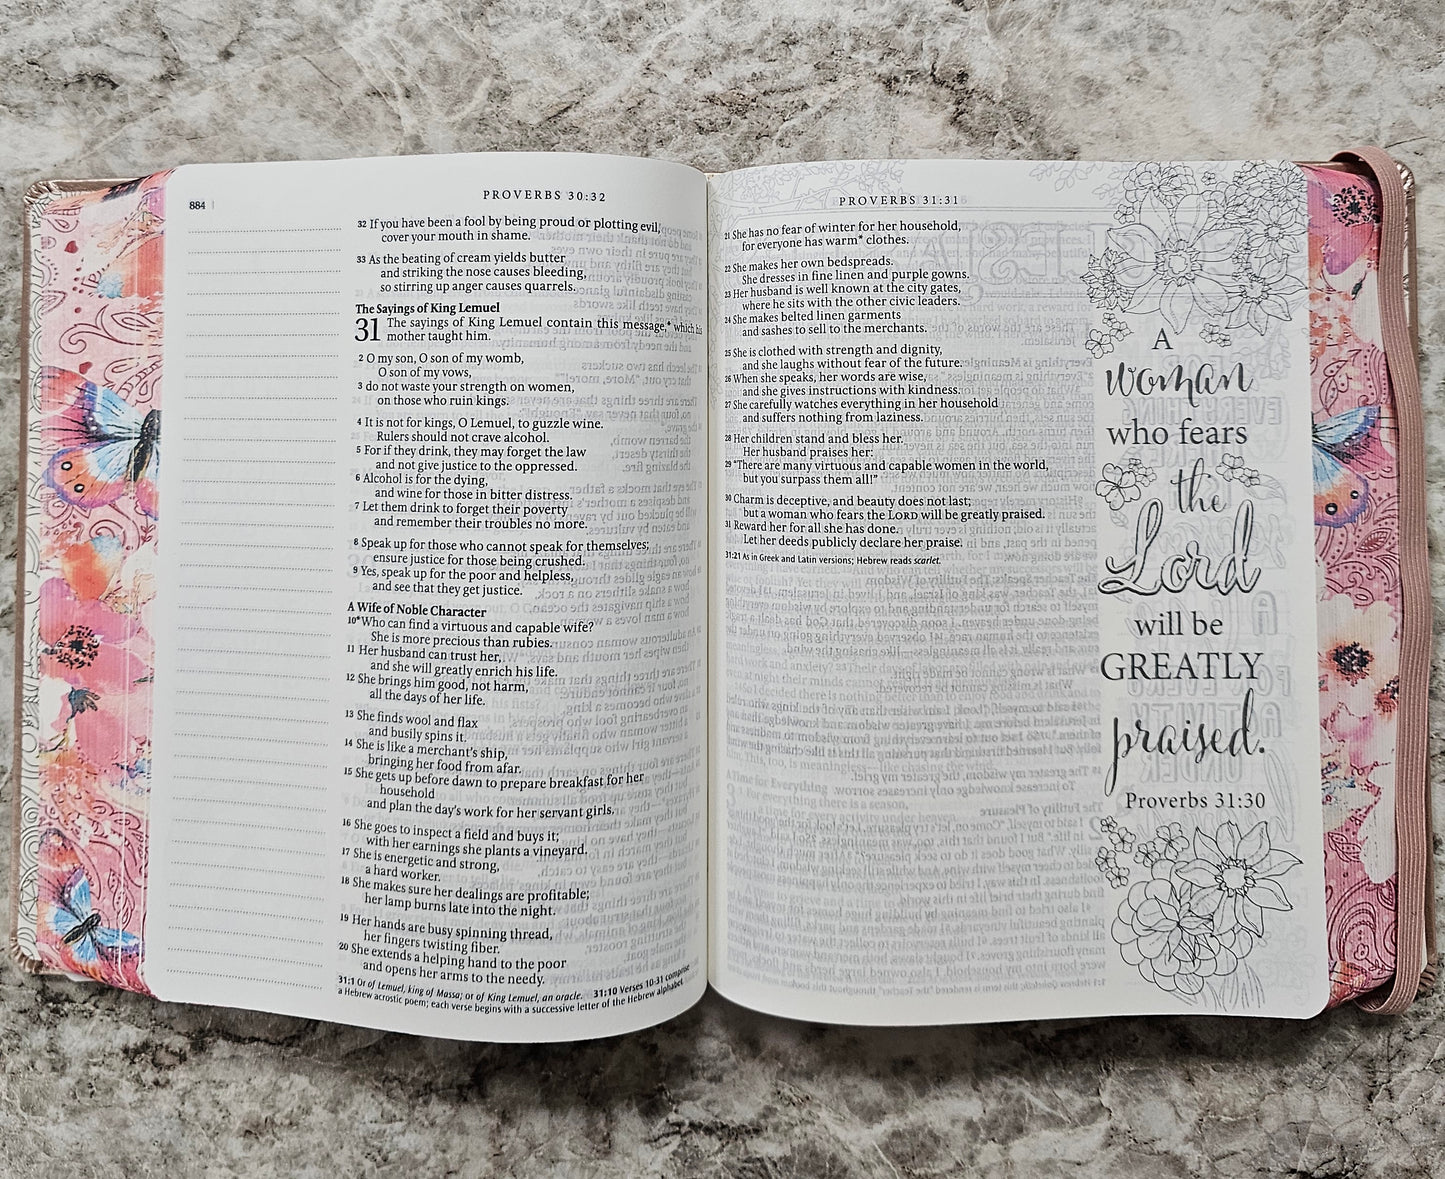 884
PROVERBS 30:32
32 If you have been a fool by being proud or plotting evil,
cover your mouth in shame.
33 As the beating of cream yields butter
and striking the nose causes bleeding,
so stirring up anger causes quarrels.
The Sayings of King Lemuel
31 The sayings of King Lemuel contain this message,* which his
mother taught him.
2 O my son, O son of my womb,
O son of my vows,
3 do not waste your strength on women,
on those who ruin kings.
4 It is not for kings, O Lemuel, to guzzle wine.
Rulers should not crave alcohol.
5 For if they drink, they may forget the law
and not give justice to the oppressed.
6 Alcohol is for the dying,
and wine for those in bitter distress.
7 Let them drink to forget their poverty
and remember their troubles no more.
8 Speak up for those who cannot speak for themselves;
ensure justice for those being crushed.
9 Yes, speak up for the poor and helpless,
and see that they get justice.
A Wife of Noble Character
10*Who can find a virtuous and capable wife?
She is more precious than rubies.
11 Her husband can trust her,
and she will greatly enrich his life.
12 She brings him good, not harm,
all the days of her life.
13 She finds wool and flax
and busily spins it.
14 She is like a merchant's ship,
bringing her food from afar.
15 She gets up before dawn to prepare breakfast for her
household
and plan the day's work for her servant girls.
16 She goes to inspect a field and buys it;
with her earnings she plants a vineyard.
17 She is energetic and strong,
a hard worker.
18 She makes sure her dealings are profitable;
her lamp burns late into the night.
19 Her hands are busy spinning thread,
her fingers twisting fiber.
20 She extends a helping hand to the poor
and opens her arms to the needy.
31:1 Or of Lemuel, king of Massa; or of King Lemuel, an oracle. 31:10 Verses 10-31 comprise
a Hebrew acrostic poem; each verse begins with a successive letter of the Hebrew alphabet.
PROVERBS 31:31
21 She has no fear of winter for her household,
for everyone has warm* clothes.
22 She makes her own bedspreads.
She dresses in fine linen and purple gowns.
23 Her husband is well known at the city gates,
where he sits with the other civic leaders.
24 She makes belted linen garments
and sashes to sell to the merchants.
25 She is clothed with strength and dignity,
and she laughs without fear of the future.
26 When she speaks, her words are wise,
and she gives instructions with kindness.
27 She carefully watches everything in her household
and suffers nothing from laziness.
28 Her children stand and bless her.
Her husband praises her:
29 "There are many virtuous and capable women in the world,
but you surpass them all!"
30 Charm is deceptive, and beauty does not last;
but a woman who fears the LORD will be greatly praised.
31 Reward her for all she has done.
Let her deeds publicly declare her praise.
31:21 As in Greek and Latin versions; Hebrew reads scarlet.
A
woman
who fears
the
Lord
will be
GREATLY
praised.
Proverbs 31:30